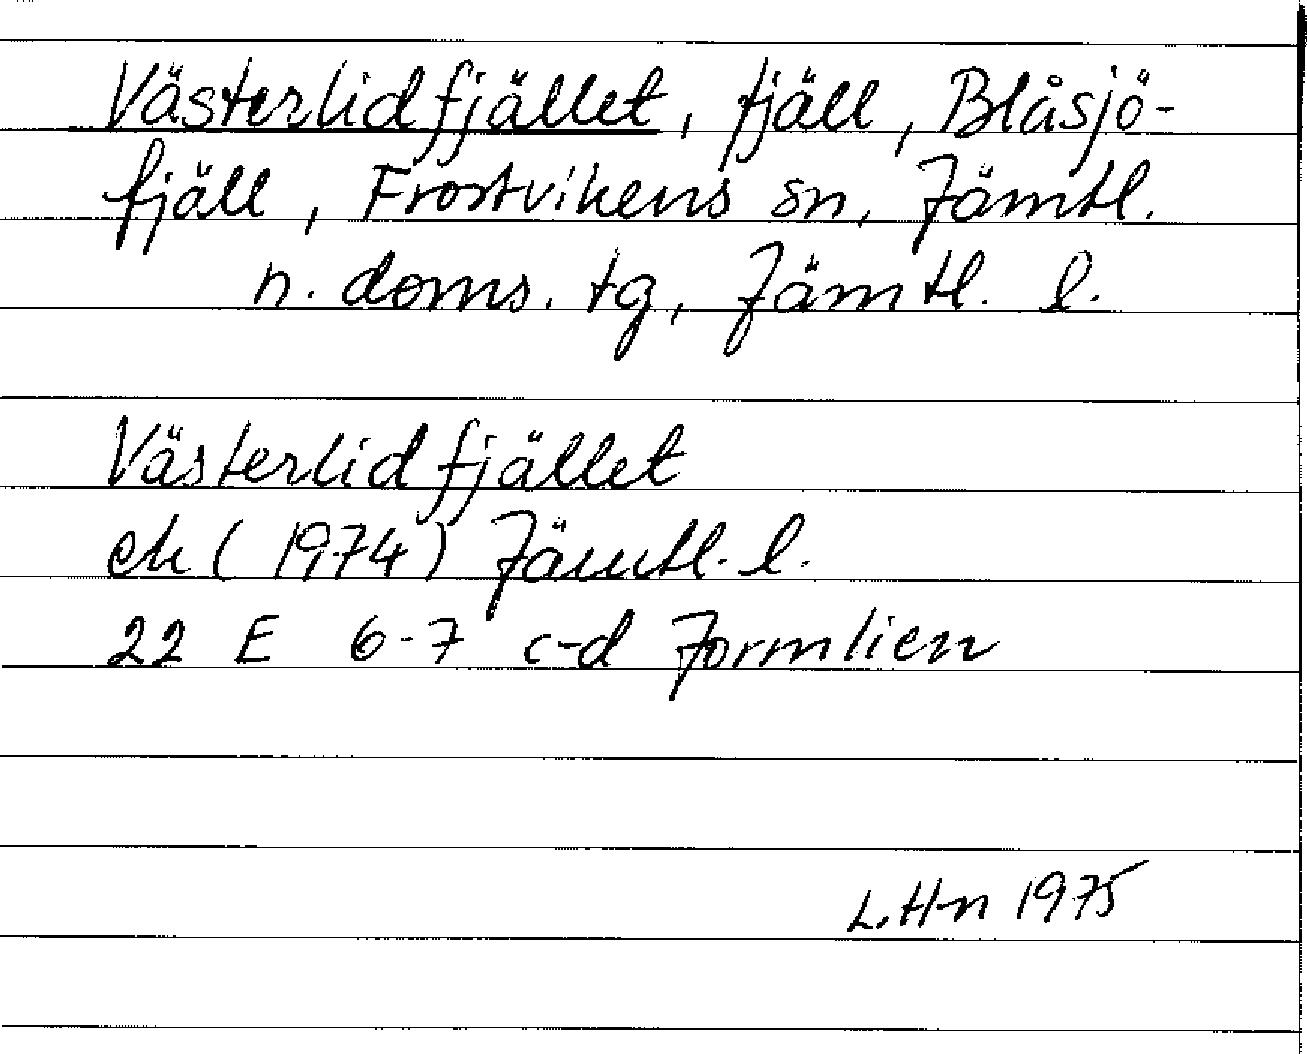 Västerlidfjället, fjäll, Blåsjö-
fjäll, Frostvikens sn, Jämtl.
n. doms. tg, Jämtl. l.
Västerlidfjället
ek (1974) Jämtl. l.
22 E 6-7 c-d Jormlien
L.H-n 1975